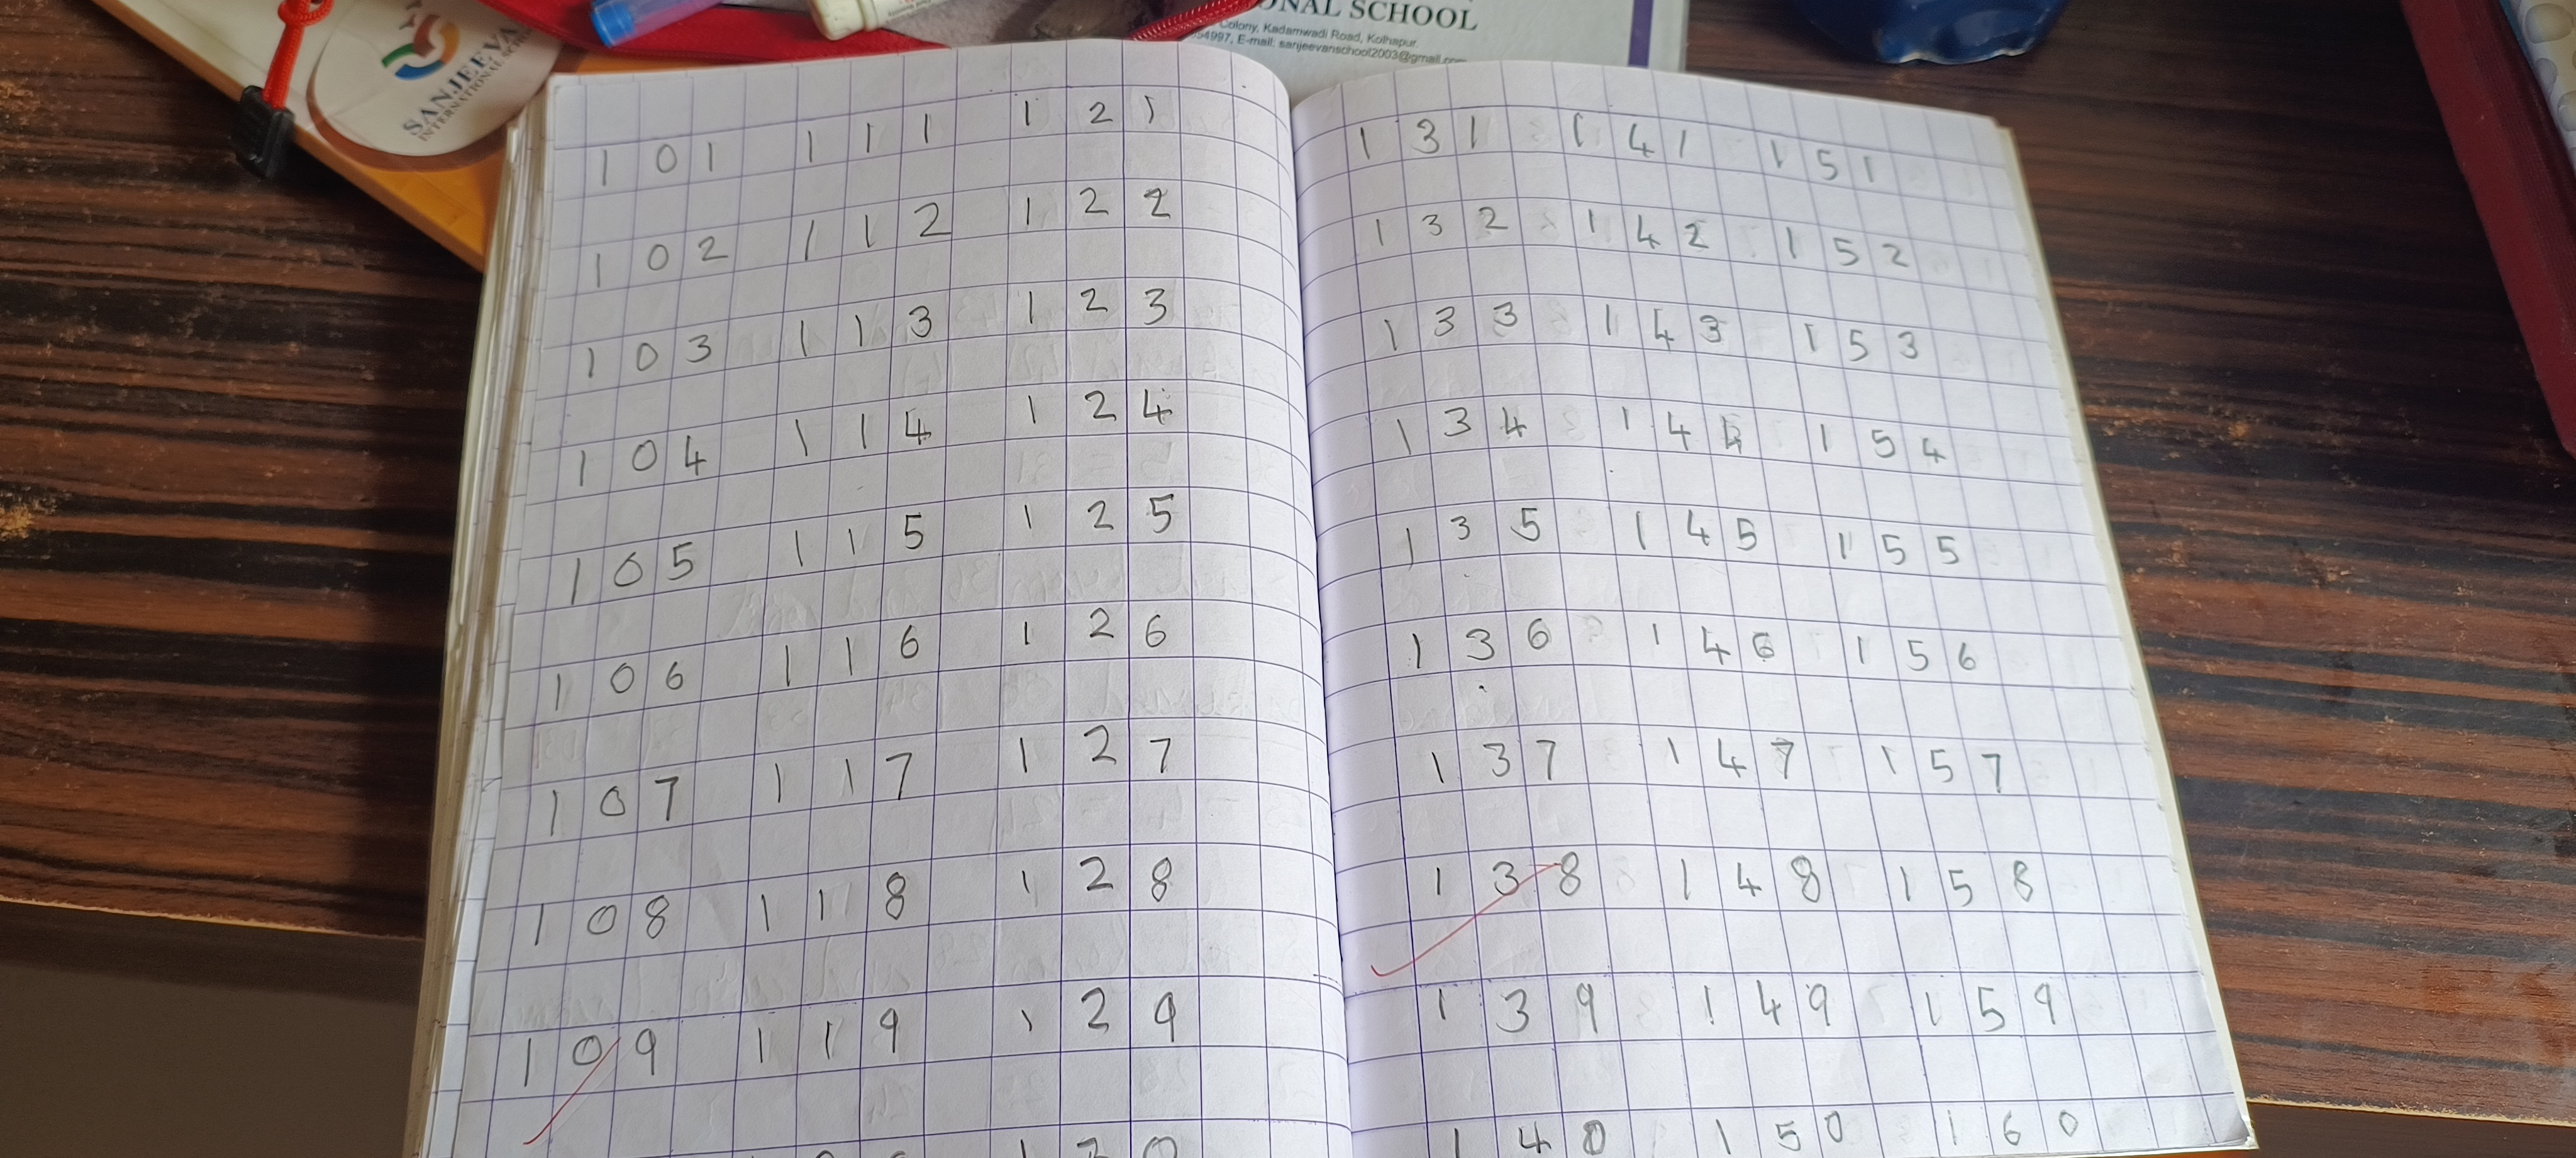 SANJEEVA
INTERNATIONAL SCHOOL
ONAL SCHOOL
Colony, Kadamwadi Road, Kolhapur.
54997, E-mail: sanjeevanschool2003@gmail.com
101 111 121
102 112 122
103 113 123
104 114 124
105 115 125
106 116 126
107 117 127
108 118 128
109 119 129
130
131 141 151
132 142 152
133 143 153
134 144 154
135 145 155
136 146 156
137 147 157
138 148 158
139 149 159
140 150 160